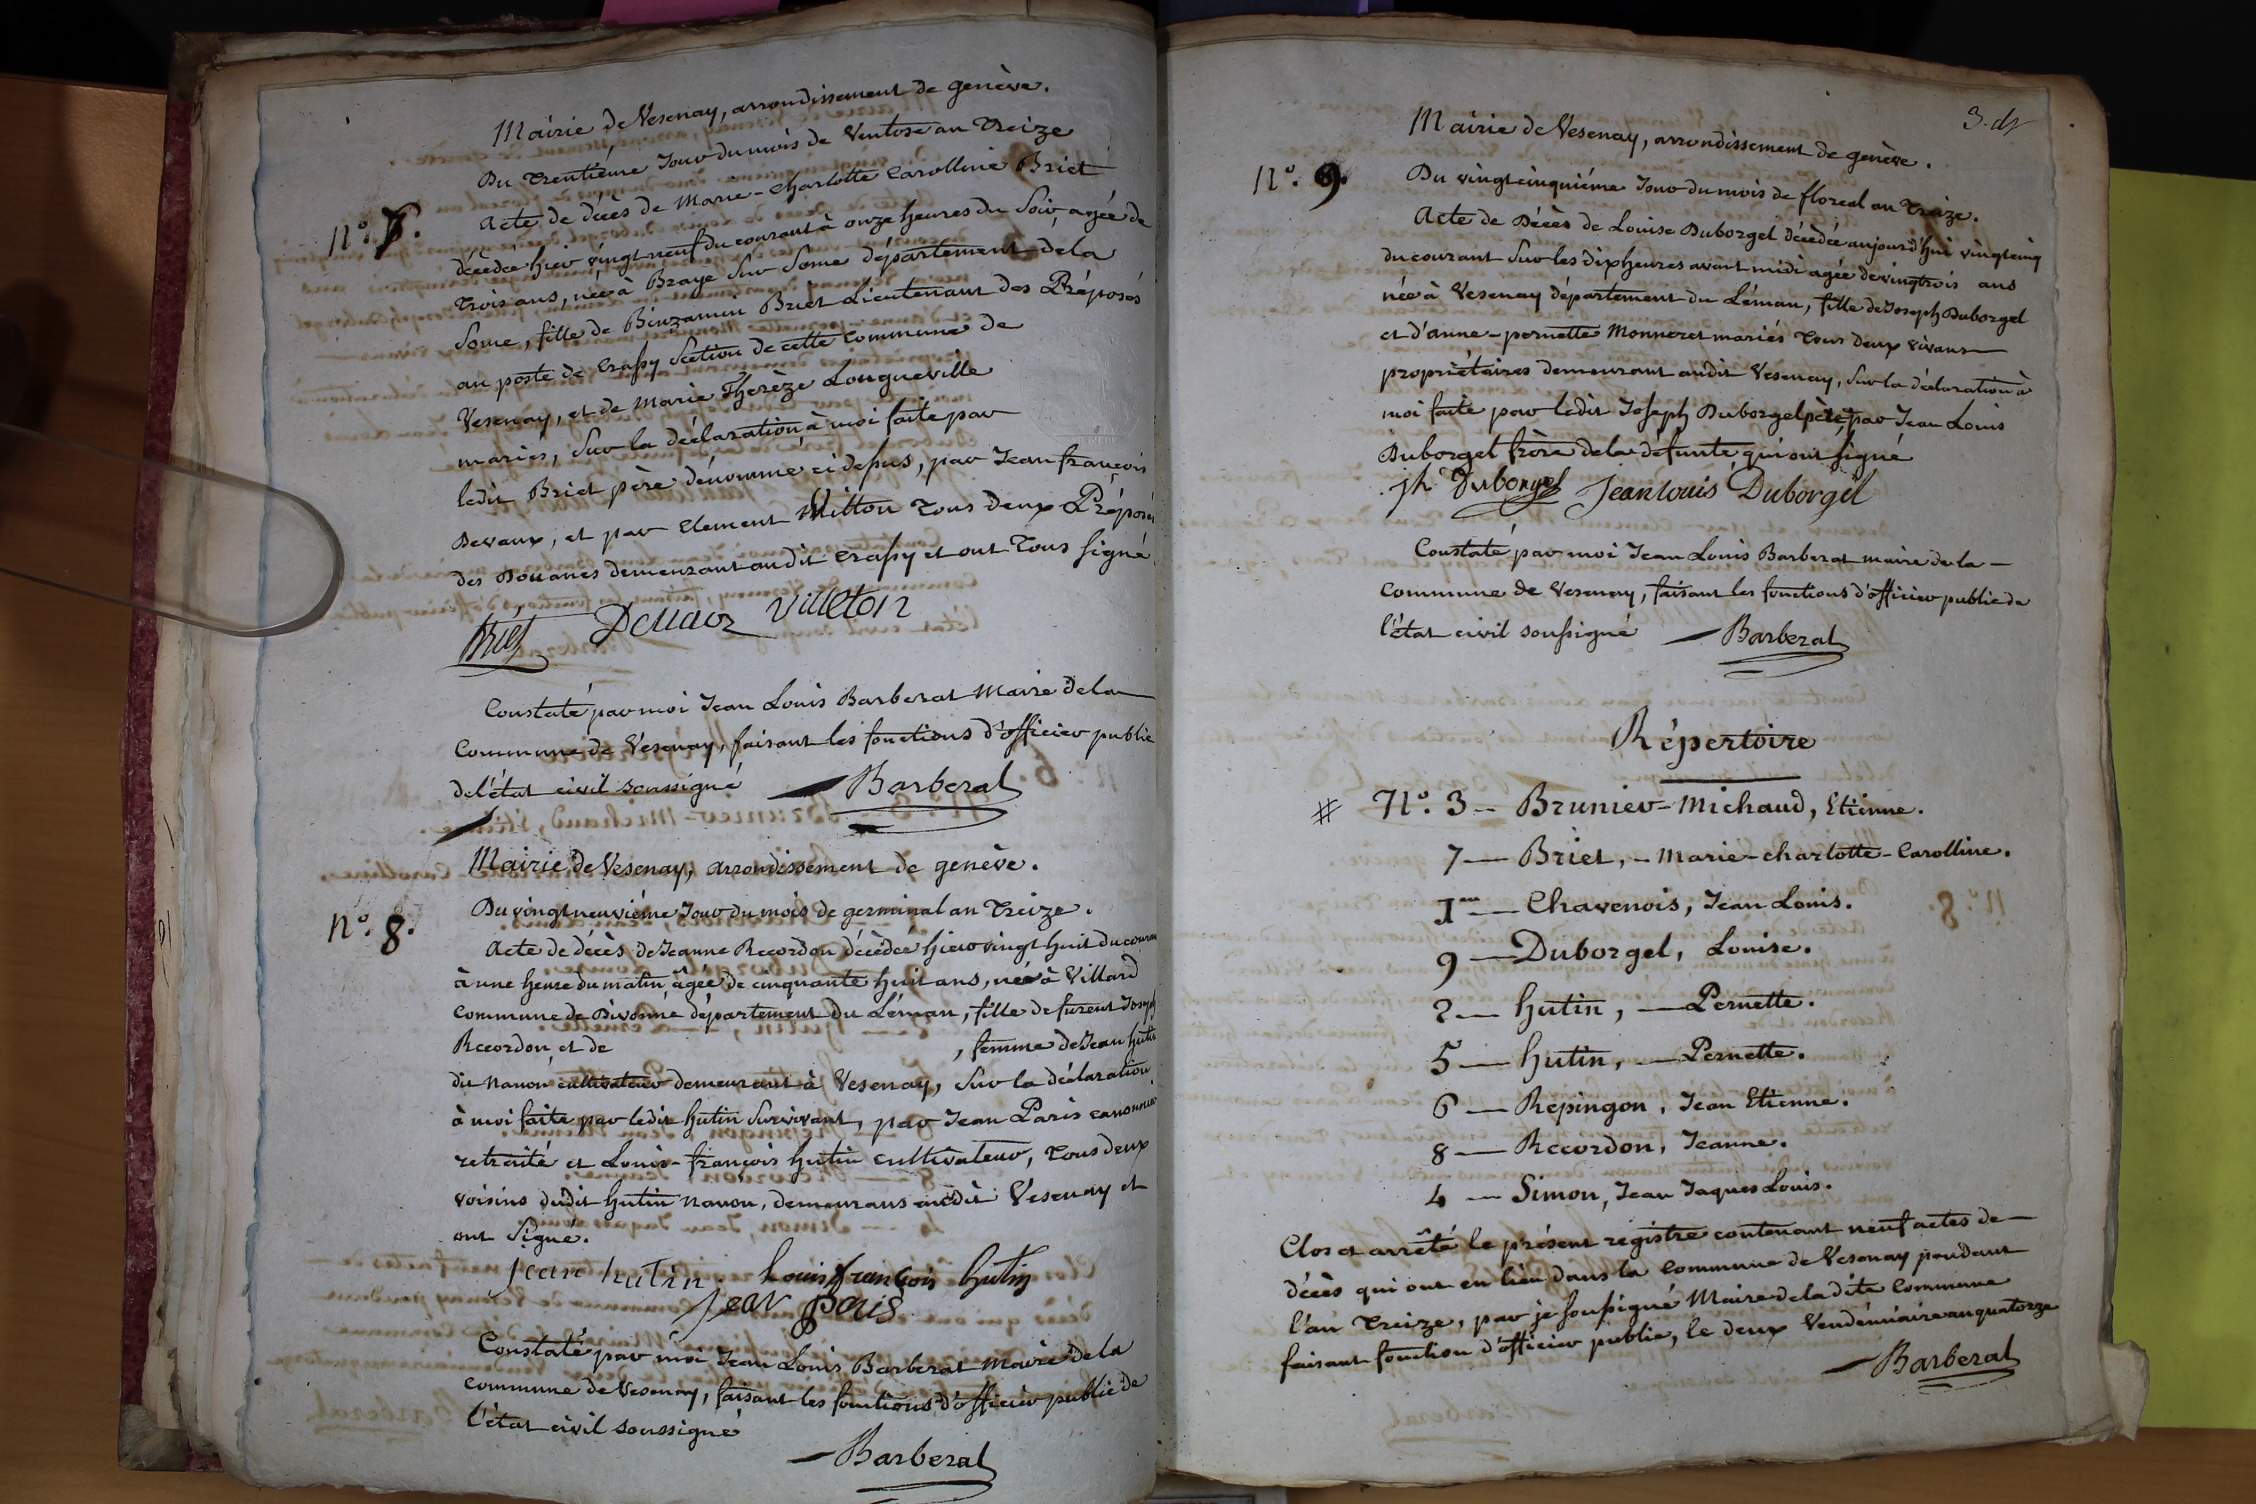 Mairie de Vesenay, arrondissement de genève.
Du Trentième Jour du mois de Ventose an Treize
n.º 7.
Acte de décès de Marie-Charlotte Carolline Briet
décédée hier vingt neuf du courant à onze heures du Soir, agée de
Trois ans, née à Braye Sur Some département dela
Some, fille de Binzamin Briet Lieutenant des Préposés
au poste de Crassy Section de cette Commune de
Vesenay, et de Marie Therèze Longueville
mariés, Sur la déclaration à moi faite par
ledit Briet père dénommé ci dessus, par Jean françois
Devaux, et par Clement Villton Tous deux Préposés
des Douanes demeurant audit Crassy et ont Tous signé
Briet Devaux Villeton
Constaté par moi Jean Louis Barberat Maire dela
Commune de Vesenay, faisant les fonctions d'officier public
del'état civil soussigné Barberat
Mairie de Vesenay, arrondissement de genève.
n.º 8.
Du vingt neuvième Jour du mois de germinal an Treize.
Acte de décès de Jeanne Recordon décédée hier vingt huit du courant
à une heure du matin âgée de cinquante huit ans, née à Villard
Commune de Divonne département du Léman, fille de furent Joseph
Recordon et de , femme de Jean hutin
dit Nanon cultivateur demeurant à Vesenay, Sur la déclaration
à moi faite par ledit hutin Survivant, par Jean Paris canonnier
retraité et Louis-françois hutin cultivateur, Tous deux
voisins dudit hutin Nanon, demeurans audit Vesenay et
ont Signé.
Jean hutin. Louis françois hutin
Jean paris
Constaté par moi Jean Louis Barberat Maire de la
commune de Vesenay, faisant les fonctions d'officier public de
l'état civil soussigné
Barberat
3. d
Mairie de Vesenay, arrondissement de genève.
n.º 9.
Du vingtcinquième Jour du mois de floreal an Treize.
Acte de Décès de Louise Duborgel décédée aujourd'hui vingtcinq
du courant Sur les dix heures avant midi agée de vingtrois ans
née à Vesenay département du Léman, fille de Joseph Duborgel
et d'anne-pernette Monneret mariés Tous deux vivans
propriétaires demeurant audit Vesenay, Sur la déclaration à
moi faite par ledit Joseph Duborgel père, par Jean Louis
Duborgel frère dela défunte qui ont signé
jh Duborgel Jean louis Duborgel
Constaté par moi Jean Louis Barberat maire de la
Commune de Vesenay, faisant les fonctions d'officier public de
l'état civil soussigné Barberat
Répertoire
# N.º 3 — Brunier-Michaud, Etienne.
7 — Briet, — Marie-charlotte-Carolline.
1er — Chavenois, Jean Louis.
9 — Duborgel, Louise.
2 — hutin, — Pernette.
5 — hutin, — Pernette.
6 — Repingon, Jean Etienne.
8 — Recordon, Jeanne.
4 — Simon, Jean Jaques Louis.
Clos et arrêté le présent registre contenant neuf actes de
décès qui ont eu lieu dans la commune de Vesenay pendant
l'an Treize, par je soussigné Maire de la dite Commune
faisant fonction d'officier public, le deux Vendémiaire an quatorze
Barberat